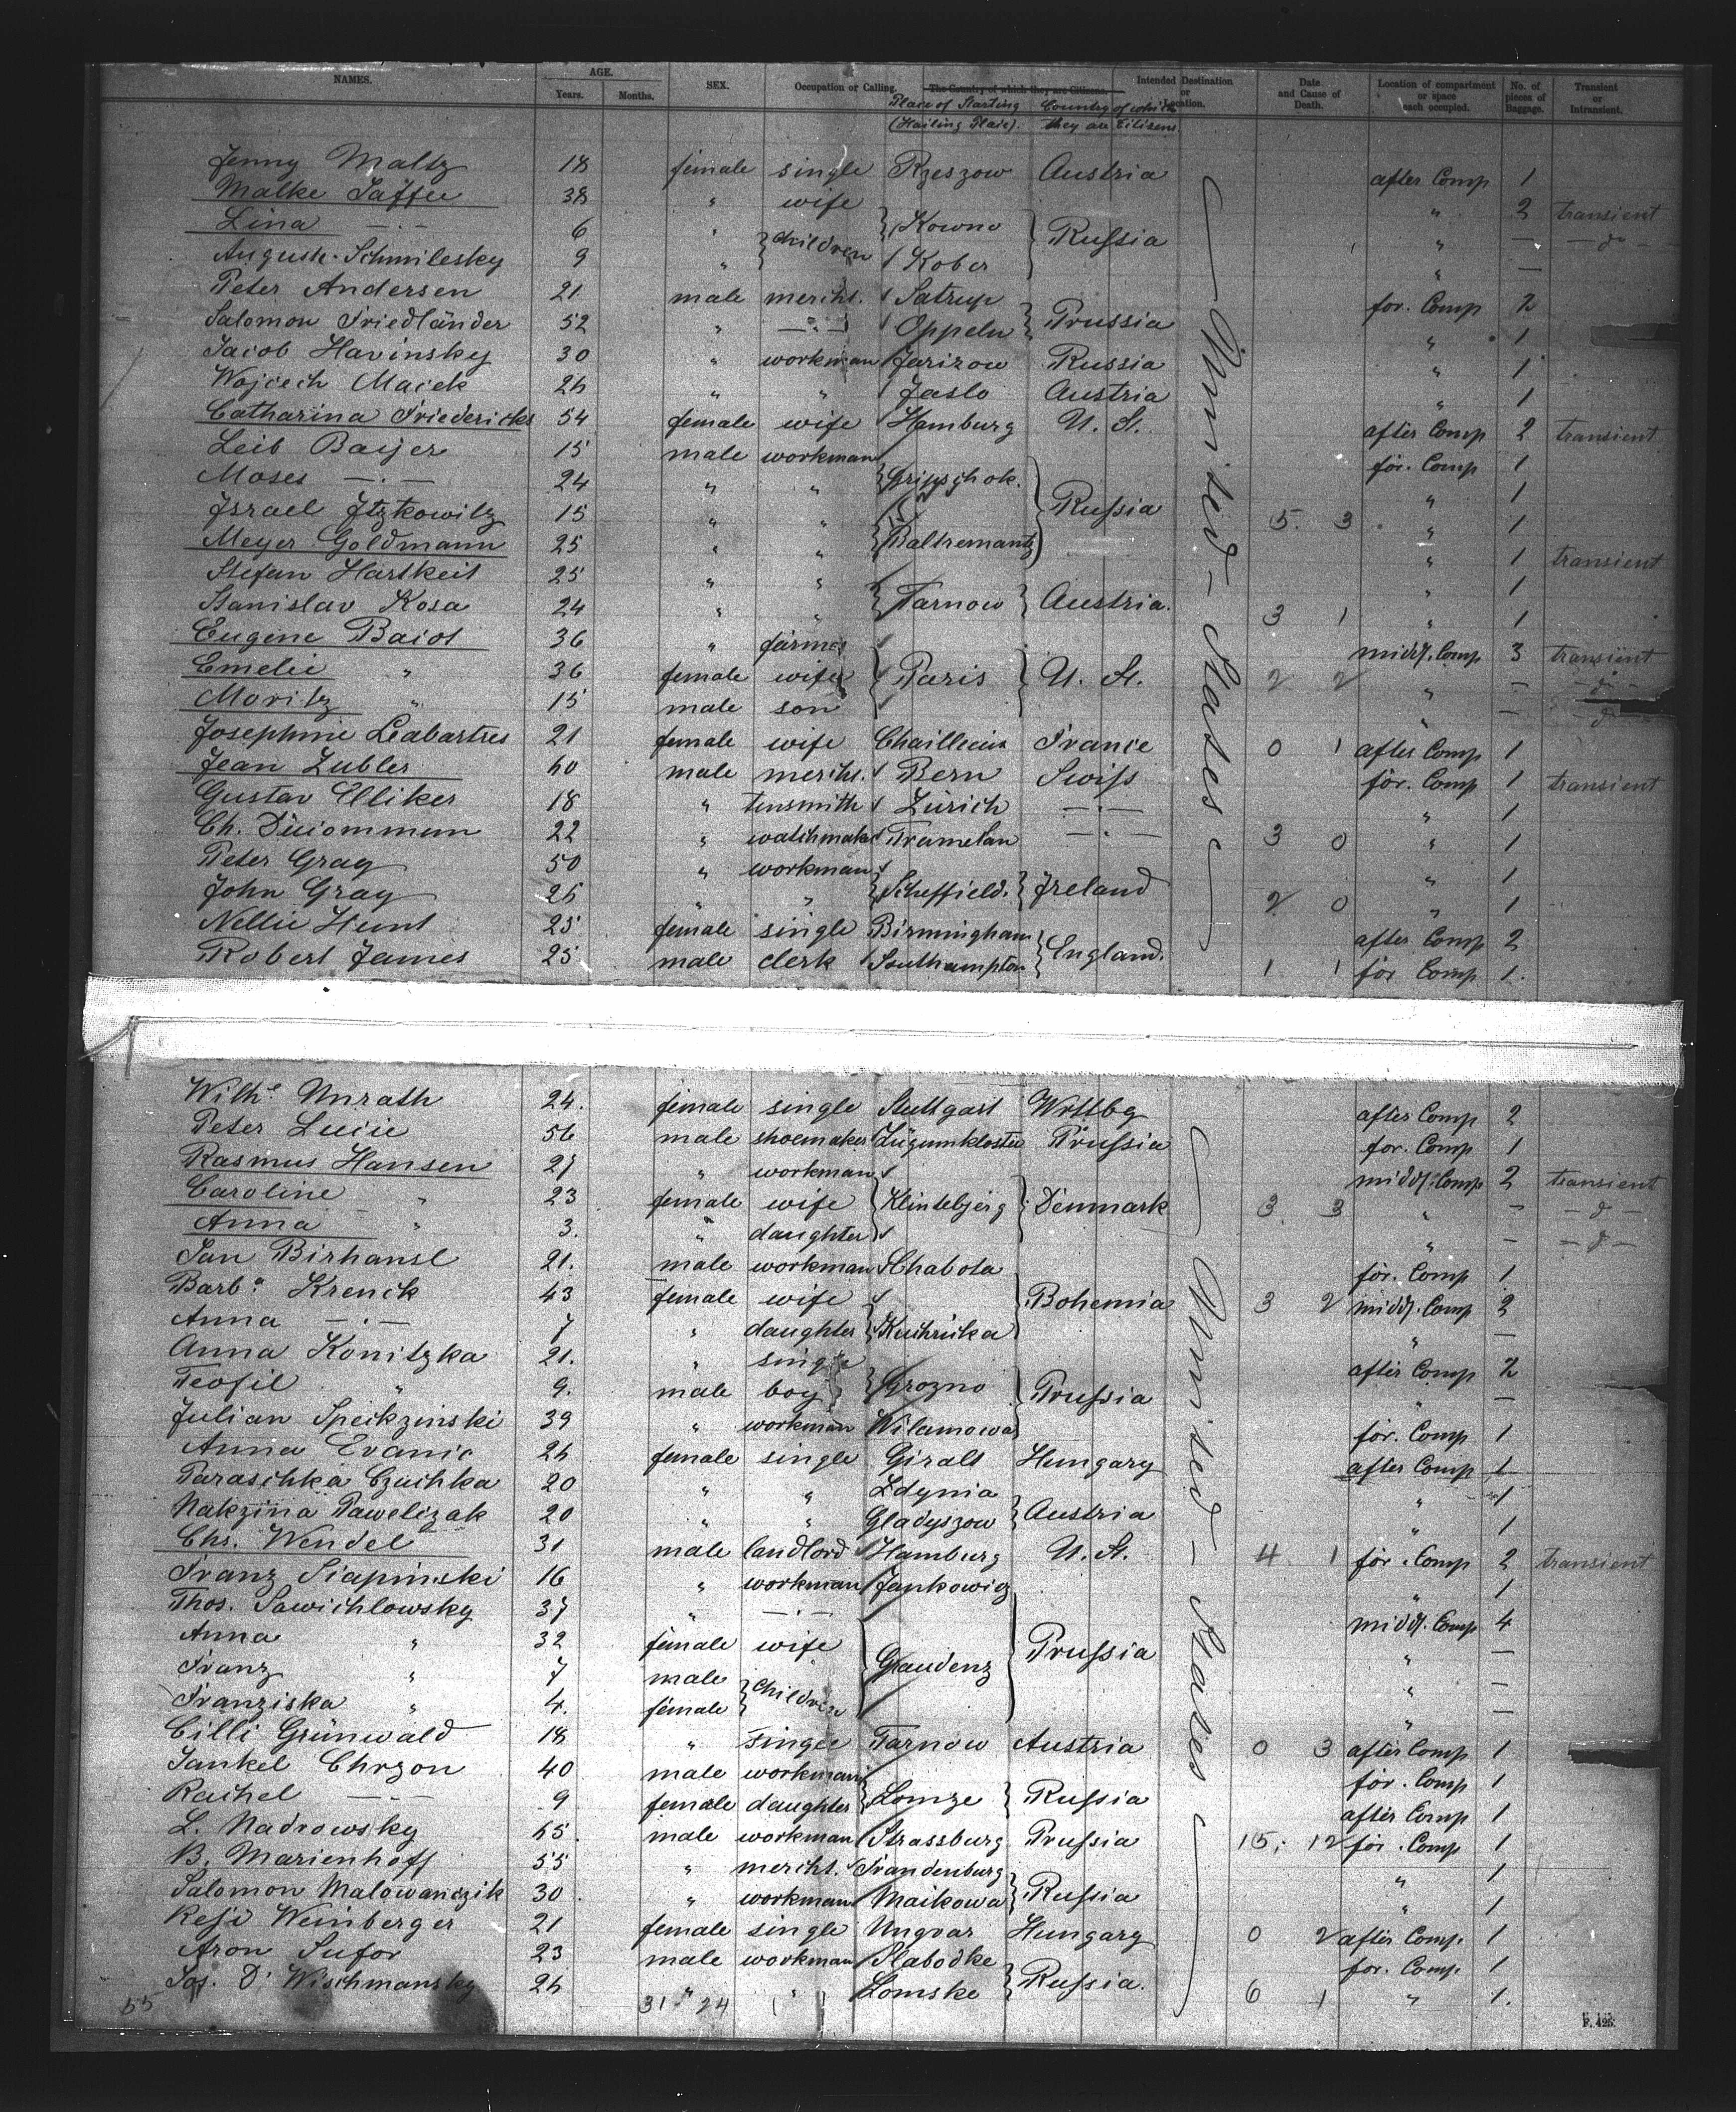 NAMES. AGE. Years. Months. SEX. Occupation or Calling. The Country of which they are Citizens. Intended Destination or Location. Date and Cause of Death. Location of compartment or space each occupied. No. of pieces of Baggage. Transient or Intransient.
Place of Starting (Hailing Place). Country of which they are Citizens.
Jenny Maltz 18 female single Rzeszow Austria after Comp 1
Malke Jaffee 38 " wife } Kowno } Russia " 2 transient
Lina —.— 6 " } children " — — do —
August Schmilesky 9 " Kober " —
Peter Andersen 21 male mercht. Satrup } Prussia for. Comp 2
Salomon Friedländer 52 " —.— Oppeln " 1
Jacob Havinsky 30 " workman Jarizow Russia " 1
Wojciech Macek 24 " " Jaslo Austria " 1
Catharina Friedericks 54 female wife Hamburg U. St. after Comp 2 transient
Leib Baijer 15 male workman } for. Comp 1
Moses —.— 24 " " } Russia " 1
Israel Itzkowitz 15 " " } Baltremantz " 1
Meyer Goldmann 25 " " " 1 transient
Stefan Hartkeit 25 " " } Tarnow } Austria. " 1
Stanislav Kosa 24 " " 3 1 " 1
Eugene Baiot 36 " farmer midd. Comp 3 transient
Emelie " 36 female wife } Paris } U. St. 2 2 " — — do —
Moritz " 15 male son " — — do —
Josephine Leabartres 21 female wife France 0 1 after Comp 1
Jean Zubler 60 male mercht. Bern Swiss for. Comp 1 transient
Gustav Elliker 18 " tinsmith Zürich —.— " 1
Ch. Duiommun 22 " watchmaker Tramelan —.— 3 0 " 1
Peter Gray 50 " workman " 1
John Gray 25 " " } Scheffield. } Ireland 2 0 " 1
Nellie Hunt 25 female single Birmingham } England. after Comp 2
Robert James 25 male clerk Southampton 1 1 for Comp 1.
— United - States —
Wilh.e Unrath 24. female single Stuttgart Wrttbg after Comp 2
Peter Lucie 56 male shoemaker Lügumkloster Prussia for. Comp 1
Rasmus Hansen 27 " workman midd. Comp 2 transient
Caroline " 23 female wife } Klintebjerg } Denmark 3 3 " — — do —
Anna " 3. " daughter " — — do —
Jan Birhansl 21. male workman Chabota for. Comp 1
Barb.a Krenek 43 female wife } Bohemia 3 2 midd. Comp 2
Anna —.— 7 " daughter } Kuchrieka " —
Anna Konitzka 21. " single after Comp 2
Teofil " 9. male boy } Grozno } Prussia " —
Julian Speikzinski 39 " workman Wilamowa for. Comp 1
Anna Evanic 24 female single Giralt Hungary after Comp 1
Paraschka Czuchka 20 " " Zdynia } Austria " 1
Nakzina Pawelizak 20 " " Gladyszow " 1
Chs. Wendel 31 male landlord Hamburg U. St. 4 1 for. Comp 2 transient
Franz Siapinski 16 " workman Jankowicz " 1
Thos. Sawichlowsky 37 " —.— midd. Comp 4
Anna " 32 female wife } Graudenz } Prussia " —
Franz " 7 male } children " —
Franziska " 4. female " —
Cilli Grünwald 18 " single Tarnow Austria 0 3 after Comp 1
Jankel Chrzon 40 male workman for. Comp 1
Rachel —.— 9 female daughter } Lomze } Russia after Comp 1
L. Nadrowsky 45. male workman Strassburg Prussia 15; 12 for. Comp 1
B. Marienhoff 55 " mercht. Frandenburg } Russia " 1
Salomon Malowanczik 30 " workman Maikowa " 1
Resi Weinberger 21 female single Ungvar Hungary 0 2 after Comp. 1
Aron Sufor 23 male workman Slabodke } Russia. for. Comp. 1
Jos. D. Wischmansky 24 " " Lomske 6 1 " 1.
— United - States —
55 31 - 24
F. 425.